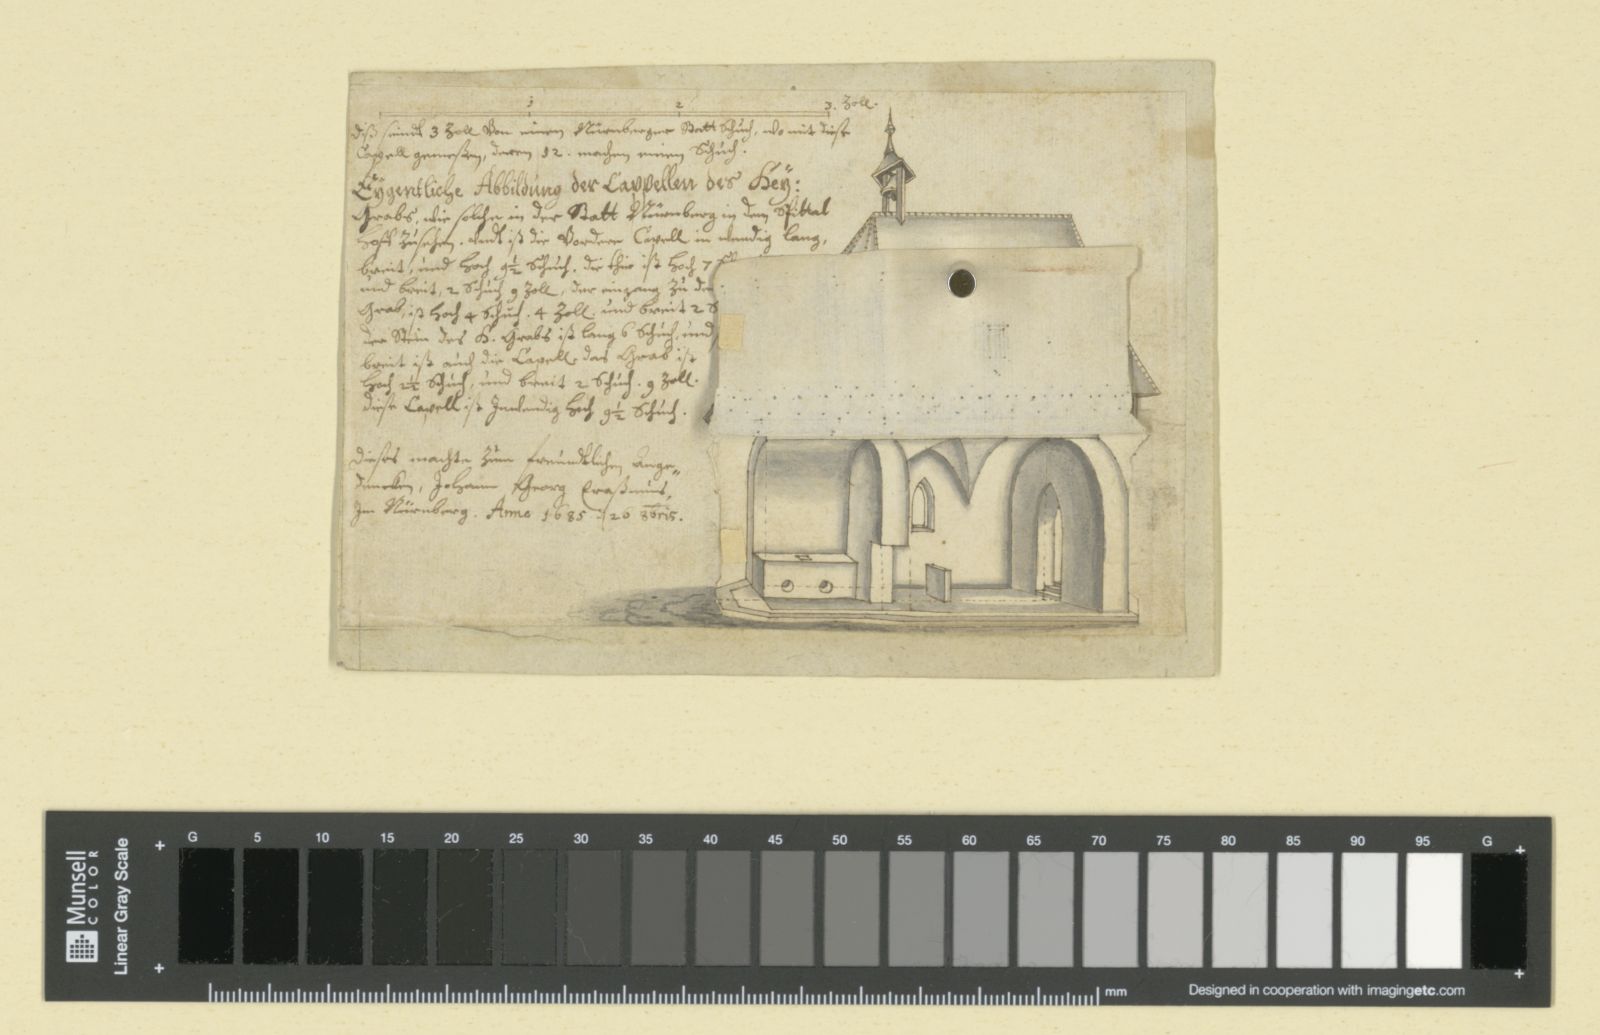 1 2 3. Zoll.
diß seindt 3 Zoll Von einem Nürnberger Statt Schuch, wo mit diese
Capell gemeßen, deren 12. machen einen Schuch.
Eÿgentliche Abbildung der Cappellen des Heÿ:
Grabs, wie solche in der Statt Nürnberg in dem Spittal
hoff Zusehen. undt ist die Vordere Capell in wendig lang,
breit, und hoch 9½ Schuch. die thür ist hoch 7
und breit, 2 Schuch 9 Zoll, der eingang Zu dem
Grab, ist hoch 4 Schuch. 4 Zoll. und breit 2 S
der Stein des H. Grabs ist lang 6 Schuch, und
breit ist auch die Capell. das Grab ist
hoch 2½ Schuch, und breit 2 Schuch. 9 Zoll.
diese Capell ist Inwendig hoch 9½ Schuch.
dieses machte Zum freundtlichen Ange-
dencken, Johann Georg Eraßmus,
Im Nürnberg. Anno 1685 : 26 8bris.
Munsell
COLOR
Linear Gray Scale
G 5 10 15 20 25 30 35 40 45 50 55 60 65 70 75 80 85 90 95 G
mm
Designed in cooperation with imagingetc.com